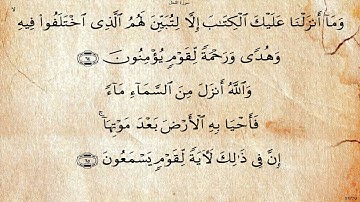 سورة النحل
وَمَآ أَنزَلْنَا عَلَيْكَ ٱلْكِتَٰبَ إِلَّا لِتُبَيِّنَ لَهُمُ ٱلَّذِى ٱخْتَلَفُوا۟ فِيهِ
وَهُدًى وَرَحْمَةً لِّقَوْمٍ يُؤْمِنُونَ ٦٤
وَٱللَّهُ أَنزَلَ مِنَ ٱلسَّمَآءِ مَآءً
فَأَحْيَا بِهِ ٱلْأَرْضَ بَعْدَ مَوْتِهَآ ۚ
إِنَّ فِى ذَٰلِكَ لَـَٔايَةً لِّقَوْمٍ يَسْمَعُونَ ٦٥